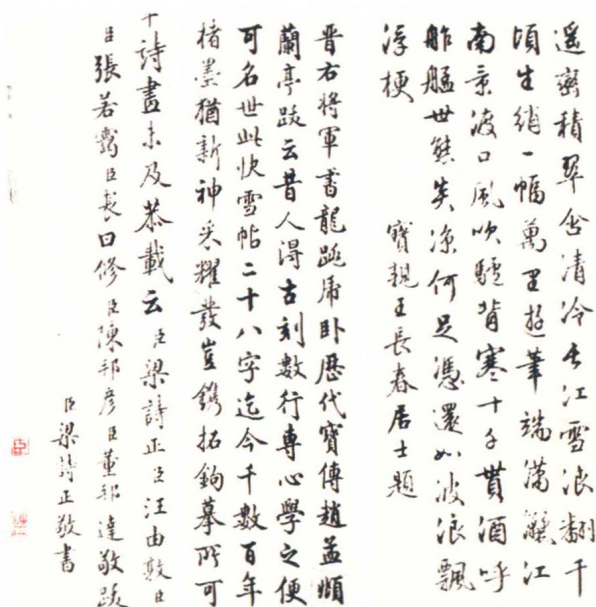 遥巒積翠含清冷長江雪浪翻千
頃生綃一幅萬里遊筆端瀟灑江
南景渡口風吹驢背寒十千貰酒呼
舴艋世態炎涼何足憑還如波浪飄
浮梗
寶親王長春居士題
晋右將軍書龍跳虎卧歷代寶傳趙孟頫
蘭亭跋云昔人得古刻數行專心學之便
可名世此快雪帖二十八字迄今千數百年
楮墨猶新神采耀發豈鐫拓鉤摹所可
十詩畫未及恭載云臣梁詩正臣汪由敦臣
臣張若靄臣裘曰修臣陳邦彥臣董邦達敬跋
臣梁詩正敬書